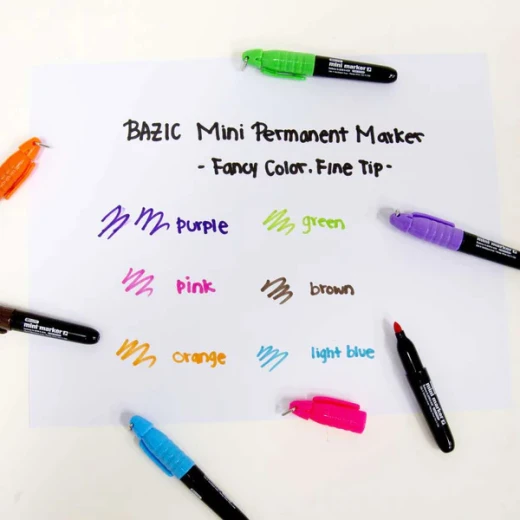 mini marker
BAZIC Mini Permanent Marker
- Fancy Color. Fine Tip -
purple
green
pink
brown
orange
light blue
mini marker
mini marker
mini marker